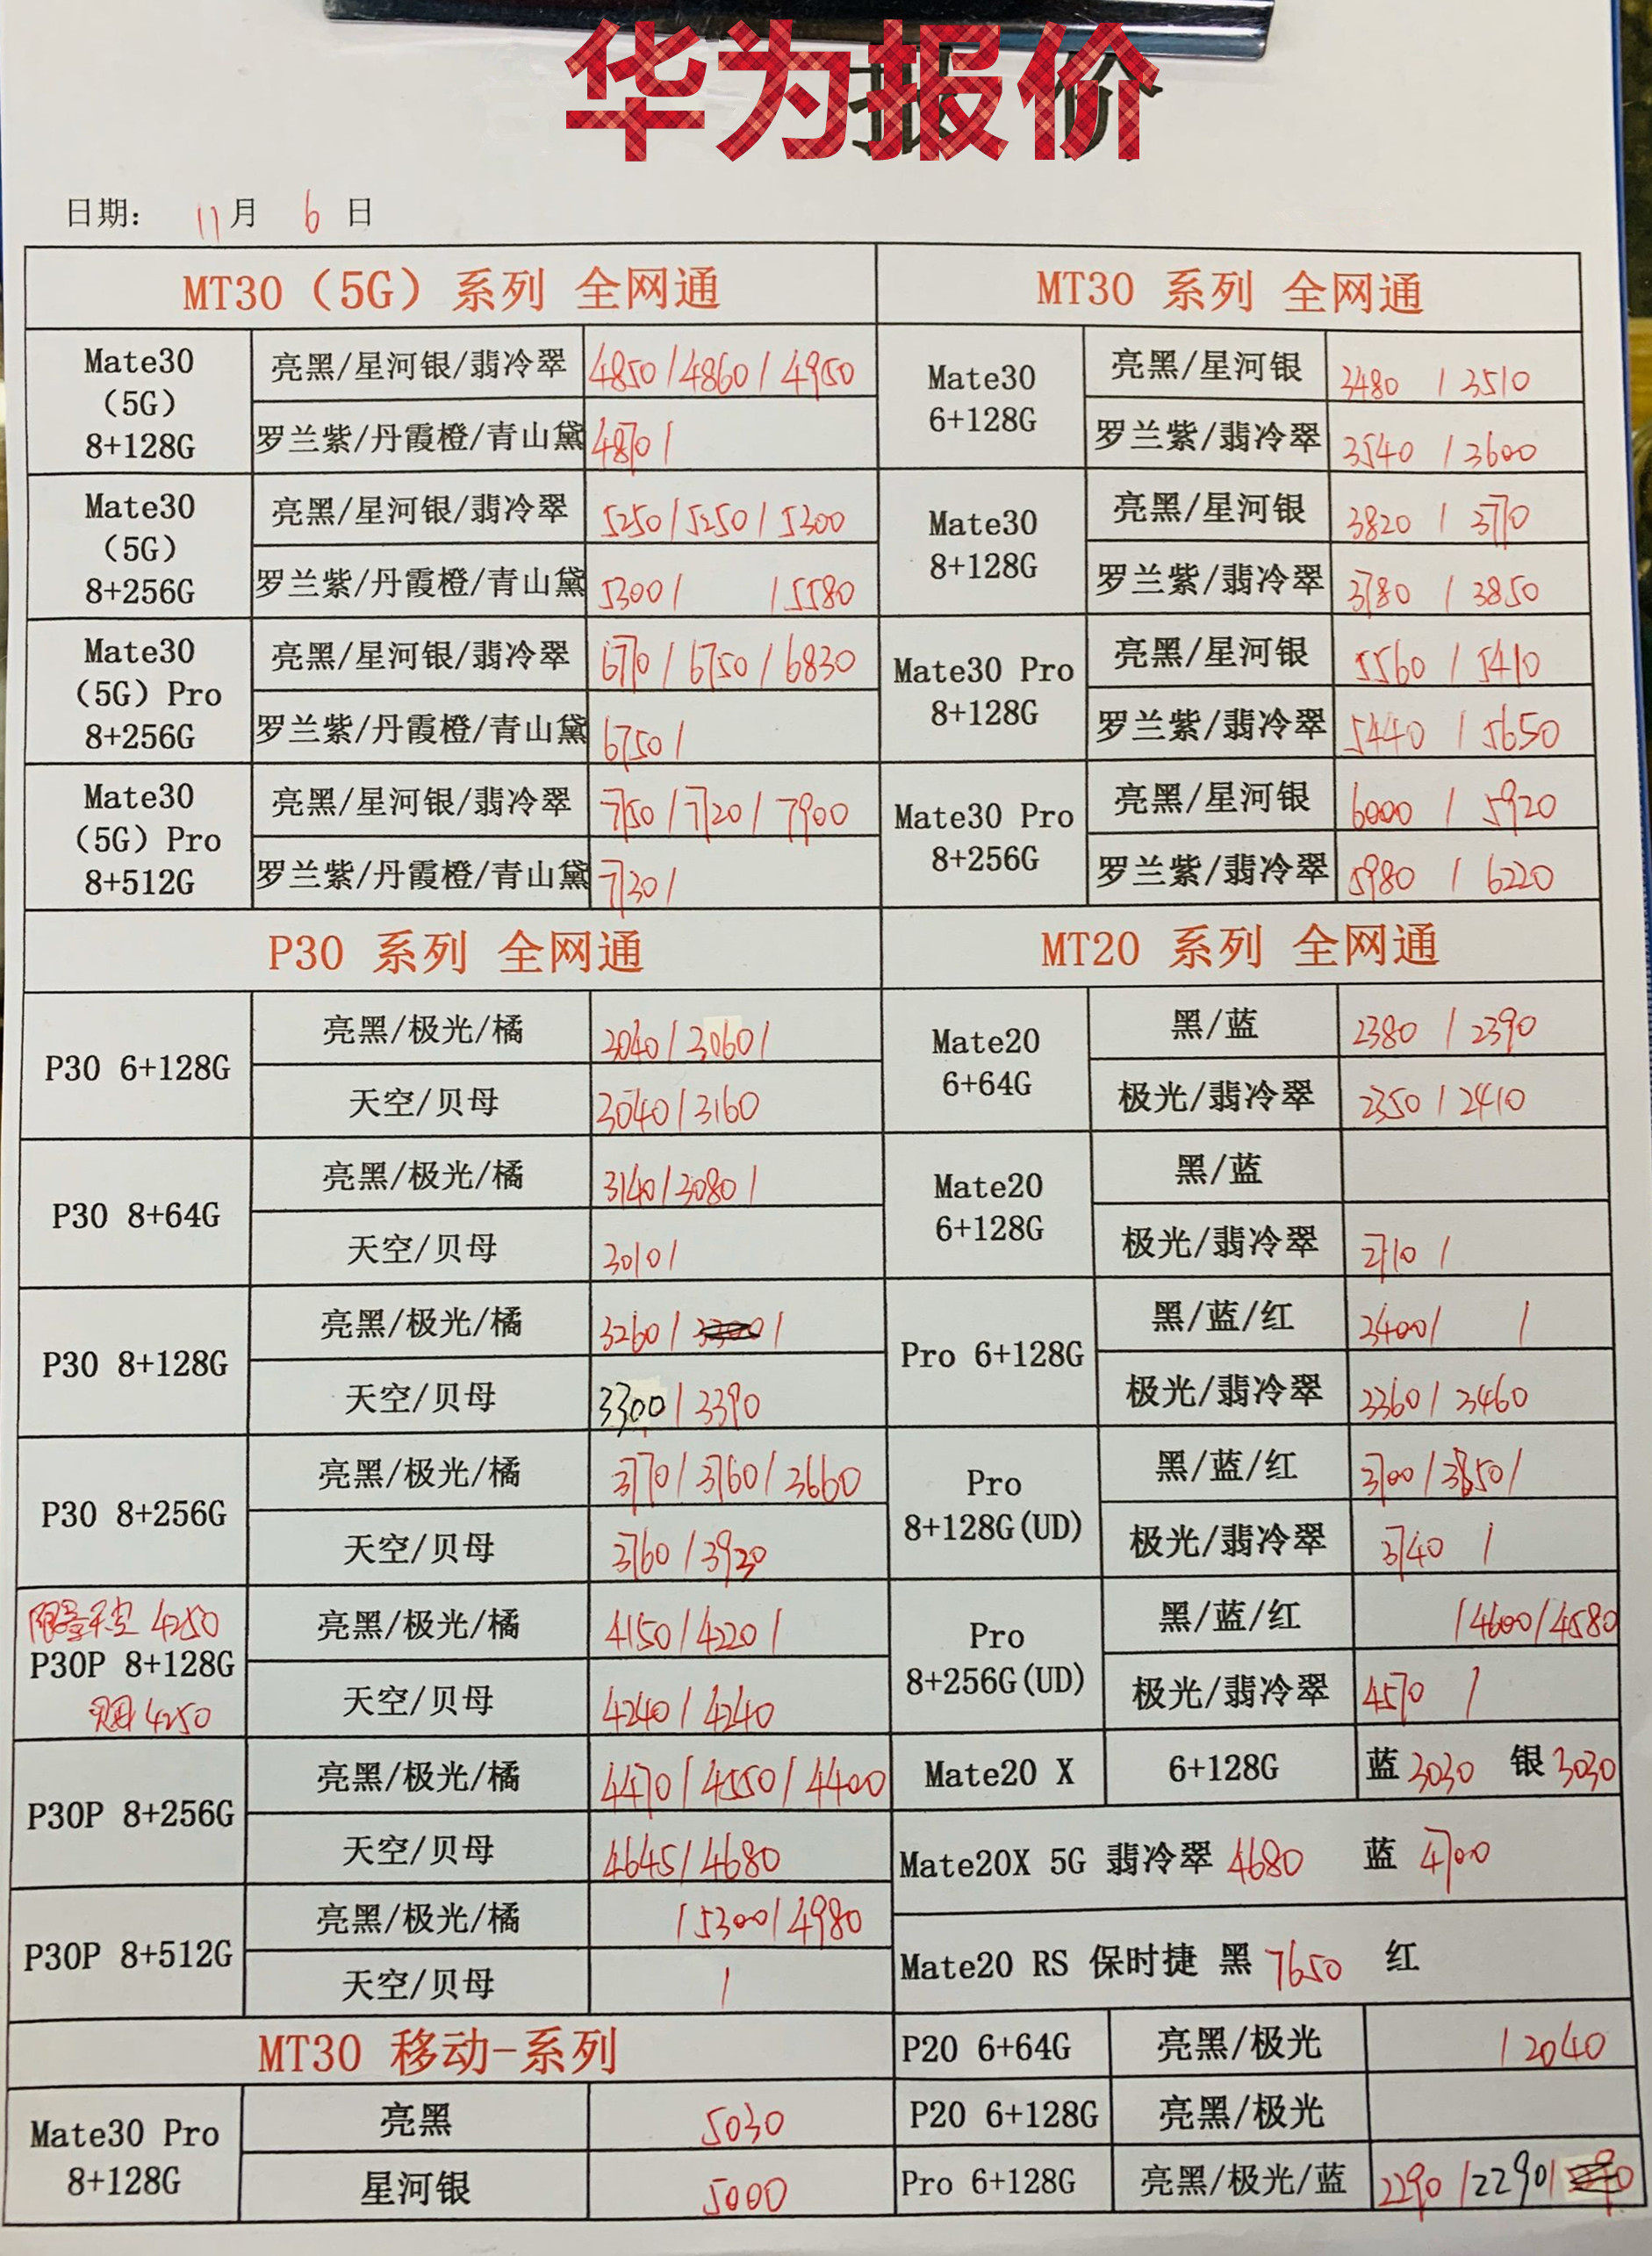 华为报价
日期： 11月 6 日
MT30（5G）系列 全网通
Mate30
（5G）
8+128G
亮黑/星河银/翡冷翠 4850/4860/4950
罗兰紫/丹霞橙/青山黛 4870/
Mate30
（5G）
8+256G
亮黑/星河银/翡冷翠 5250/5250/5300
罗兰紫/丹霞橙/青山黛 5300/ /5580
Mate30
（5G）Pro
8+256G
亮黑/星河银/翡冷翠 6770/6750/6830
罗兰紫/丹霞橙/青山黛 6750/
Mate30
（5G）Pro
8+512G
亮黑/星河银/翡冷翠 7750/7720/7900
罗兰紫/丹霞橙/青山黛 7730/
MT30 系列 全网通
Mate30
6+128G
亮黑/星河银 3480 / 3510
罗兰紫/翡冷翠 3540 / 3600
Mate30
8+128G
亮黑/星河银 3820 / 3770
罗兰紫/翡冷翠 3780 / 3850
Mate30 Pro
8+128G
亮黑/星河银 5560 / 5410
罗兰紫/翡冷翠 5440 / 5650
Mate30 Pro
8+256G
亮黑/星河银 6000 / 5920
罗兰紫/翡冷翠 5980 / 6220
P30 系列 全网通
P30 6+128G
亮黑/极光/橘 3040/3060/
天空/贝母 3040/3160
P30 8+64G
亮黑/极光/橘 3140/3080/
天空/贝母 3010/
P30 8+128G
亮黑/极光/橘 3260/ /
天空/贝母 3300/3390
P30 8+256G
亮黑/极光/橘 3770/3760/3660
天空/贝母 3760/3920
天空 4250
P30P 8+128G
贝母 4250
亮黑/极光/橘 4150/4220/
天空/贝母 4240/4240
P30P 8+256G
亮黑/极光/橘 4470/4550/4400
天空/贝母 4645/4680
P30P 8+512G
亮黑/极光/橘 /5300/4980
天空/贝母 /
MT20 系列 全网通
Mate20
6+64G
黑/蓝 2380 / 2390
极光/翡冷翠 2350 / 2410
Mate20
6+128G
黑/蓝
极光/翡冷翠 2710 /
Pro 6+128G
黑/蓝/红 3400/ /
极光/翡冷翠 3360/ 3460
Pro
8+128G(UD)
黑/蓝/红 3700/3850/
极光/翡冷翠 3740 /
Pro
8+256G(UD)
黑/蓝/红 /4600/4580
极光/翡冷翠 4570 /
Mate20 X 6+128G 蓝 3030 银 3030
Mate20X 5G 翡冷翠 4680 蓝 4700
Mate20 RS 保时捷 黑 7650 红
MT30 移动-系列
Mate30 Pro
8+128G
亮黑 5030
星河银 5000
P20 6+64G 亮黑/极光 / 2040
P20 6+128G 亮黑/极光
Pro 6+128G 亮黑/极光/蓝 2290 /2290/